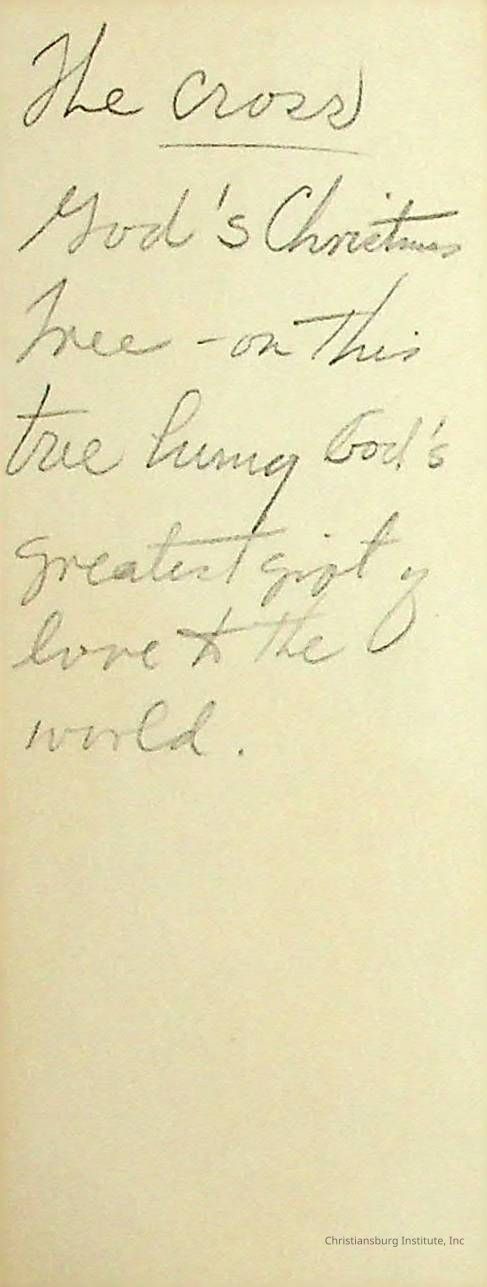 The cross
God's Christmas
Tree - on this
tree hung God's
greatest gift of
love to the
world.
Christiansburg Institute, Inc